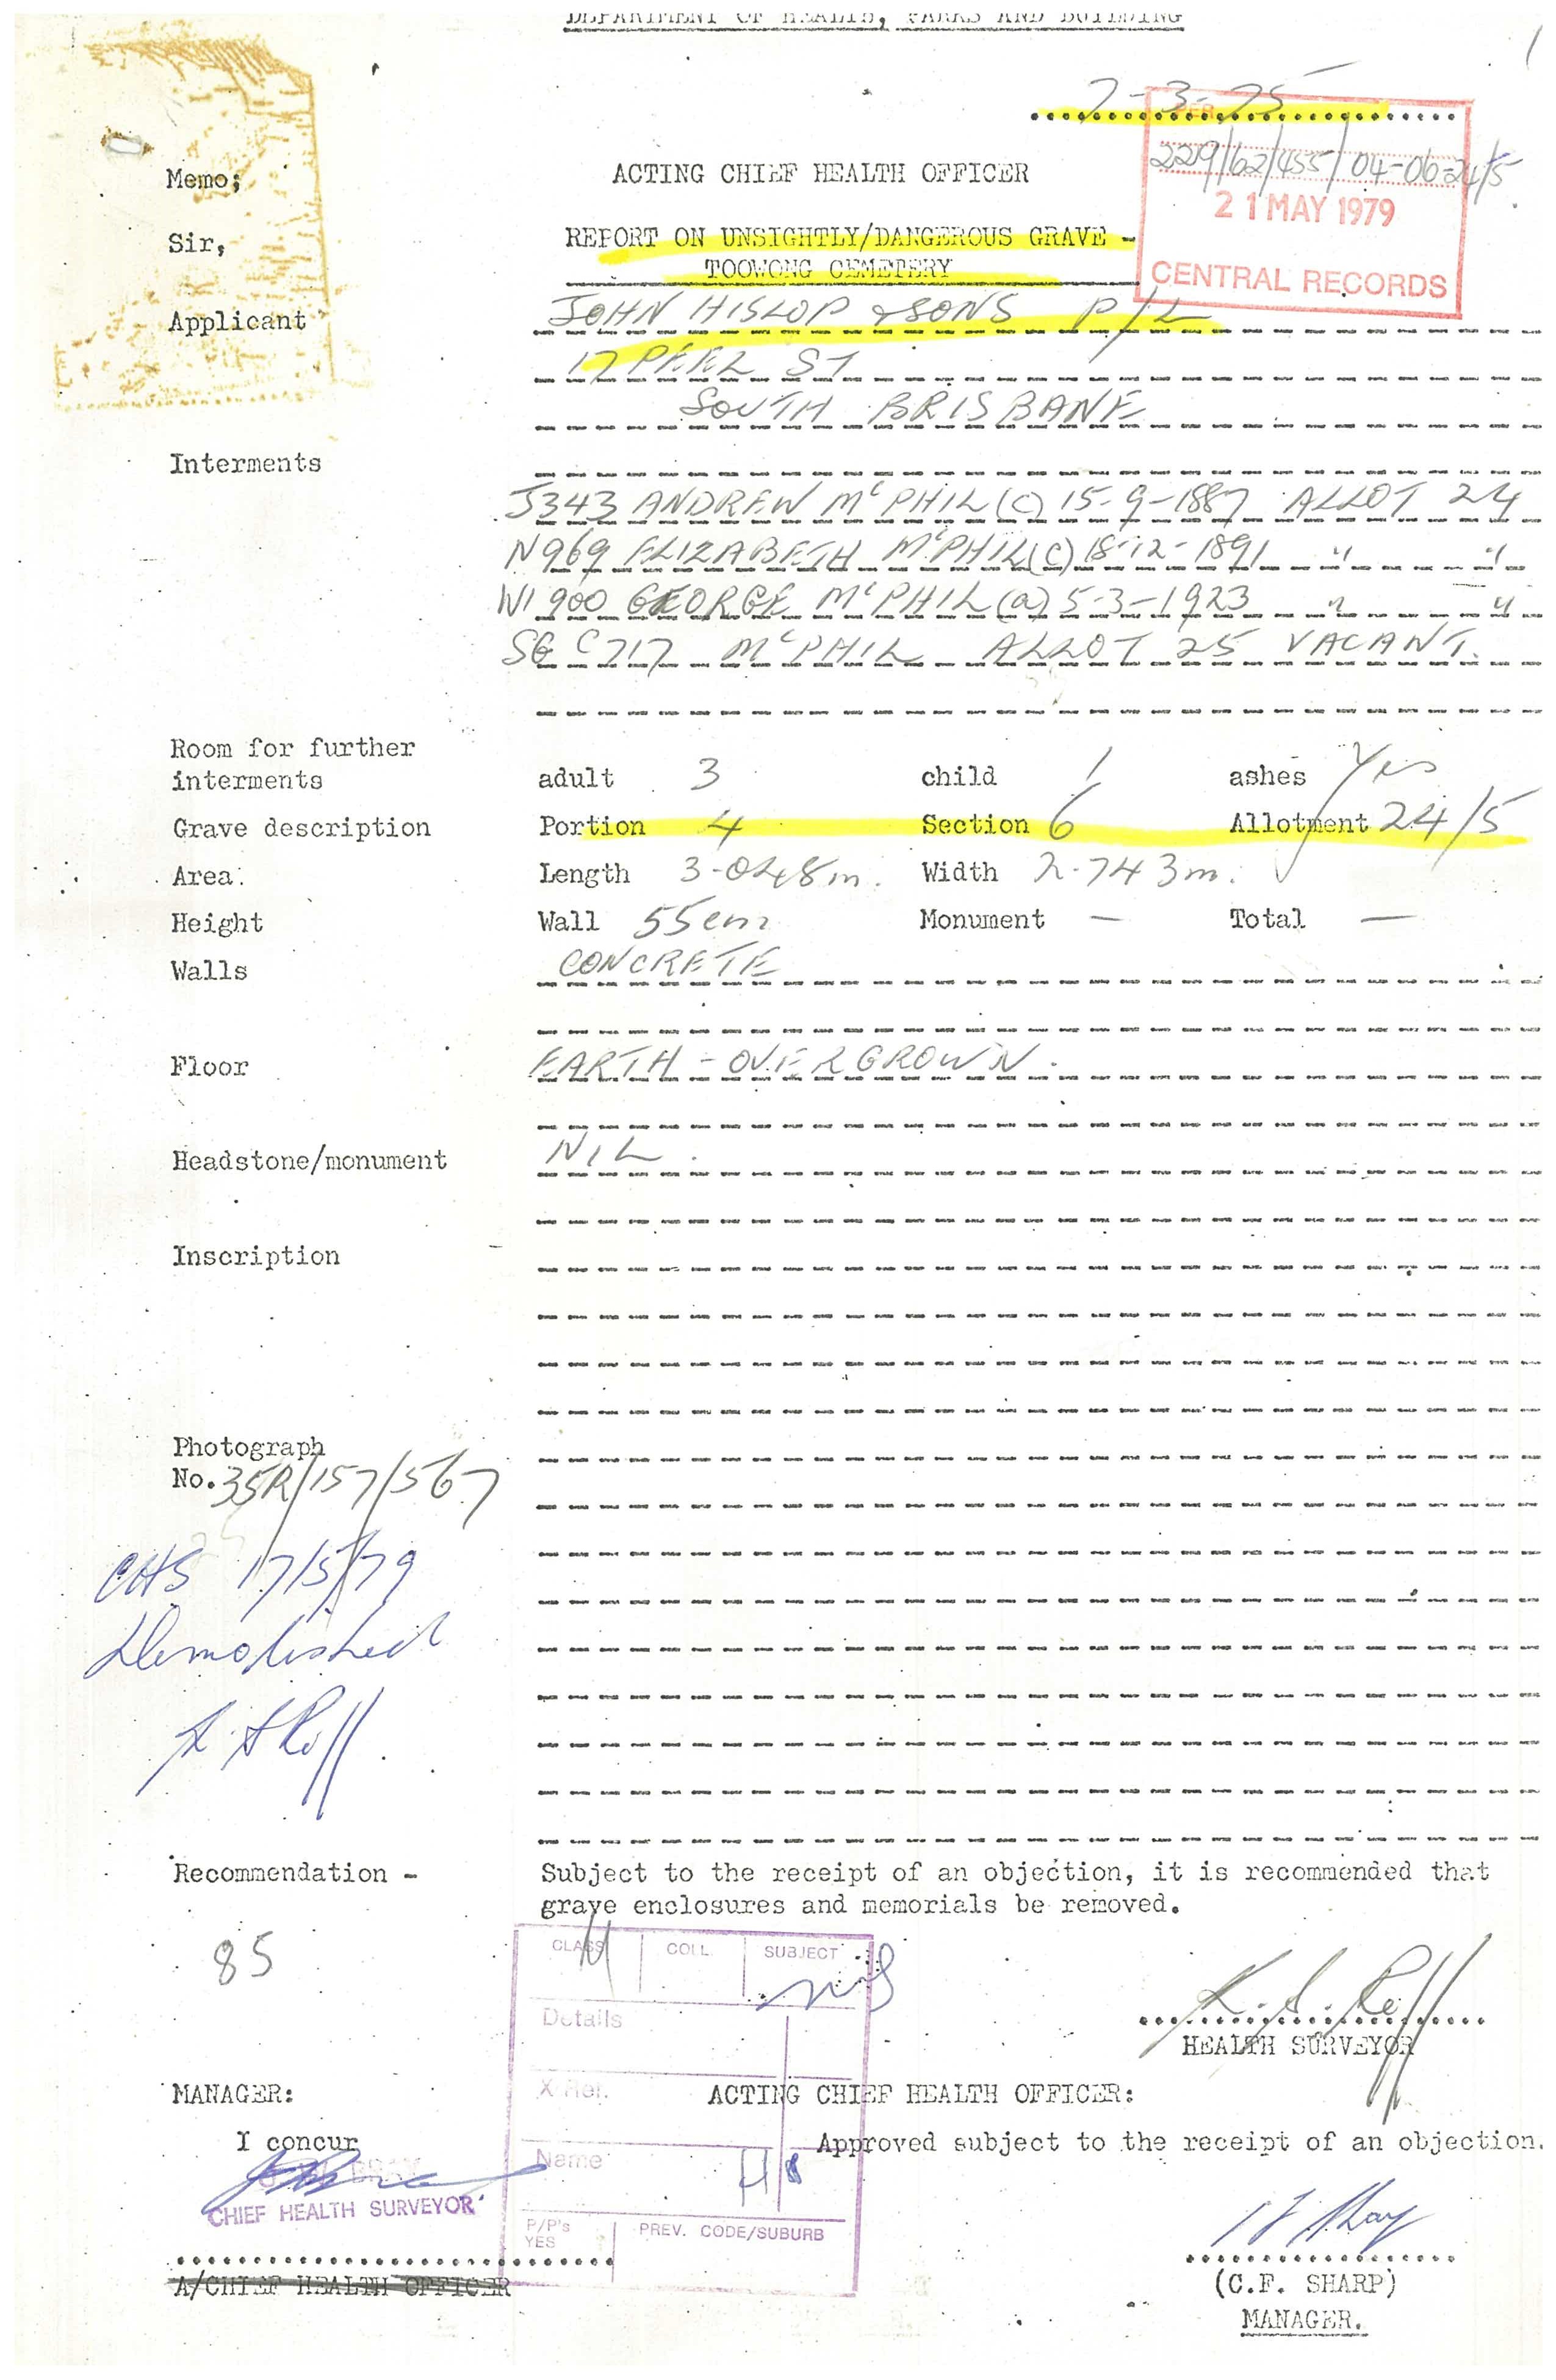 DEPARTMENT OF HEALTH, PARKS AND BUILDING
7-3-75
229/62/455/04-06-24/5
21 MAY 1979
CENTRAL RECORDS
Memo; ACTING CHIEF HEALTH OFFICER
Sir, REPORT ON UNSIGHTLY/DANGEROUS GRAVE -
TOOWONG CEMETERY
Applicant JOHN HISLOP & SONS P/L
17 PEEL ST
SOUTH BRISBANE
Interments
J343 ANDREW McPHIL (c) 15-9-1887 ALLOT 24
N969 ELIZABETH McPHIL (c) 18-12-1891 " "
W1900 GEORGE McPHIL (a) 5-3-1923 " "
SG C717 McPHIL ALLOT 25 VACANT.
Room for further
interments adult 3 child 1 ashes Yes
Grave description Portion 4 Section 6 Allotment 24/5
Area: Length 3.048m. Width 2.743m.
Height Wall 55cm Monument — Total —
Walls CONCRETE
Floor EARTH - OVERGROWN.
Headstone/monument NIL.
Inscription
Photograph
No. 35R/157/567
CHS 17/5/79
Demolished
Recommendation - Subject to the receipt of an objection, it is recommended that
grave enclosures and memorials be removed.
85
CLASS COLL. SUBJECT
Details
X Ref.
Name
P/P's
YES
PREV. CODE/SUBURB
HEALTH SURVEYOR
MANAGER: ACTING CHIEF HEALTH OFFICER:
I concur Approved subject to the receipt of an objection.
CHIEF HEALTH SURVEYOR
A/CHIEF HEALTH OFFICER
(C.F. SHARP)
MANAGER.